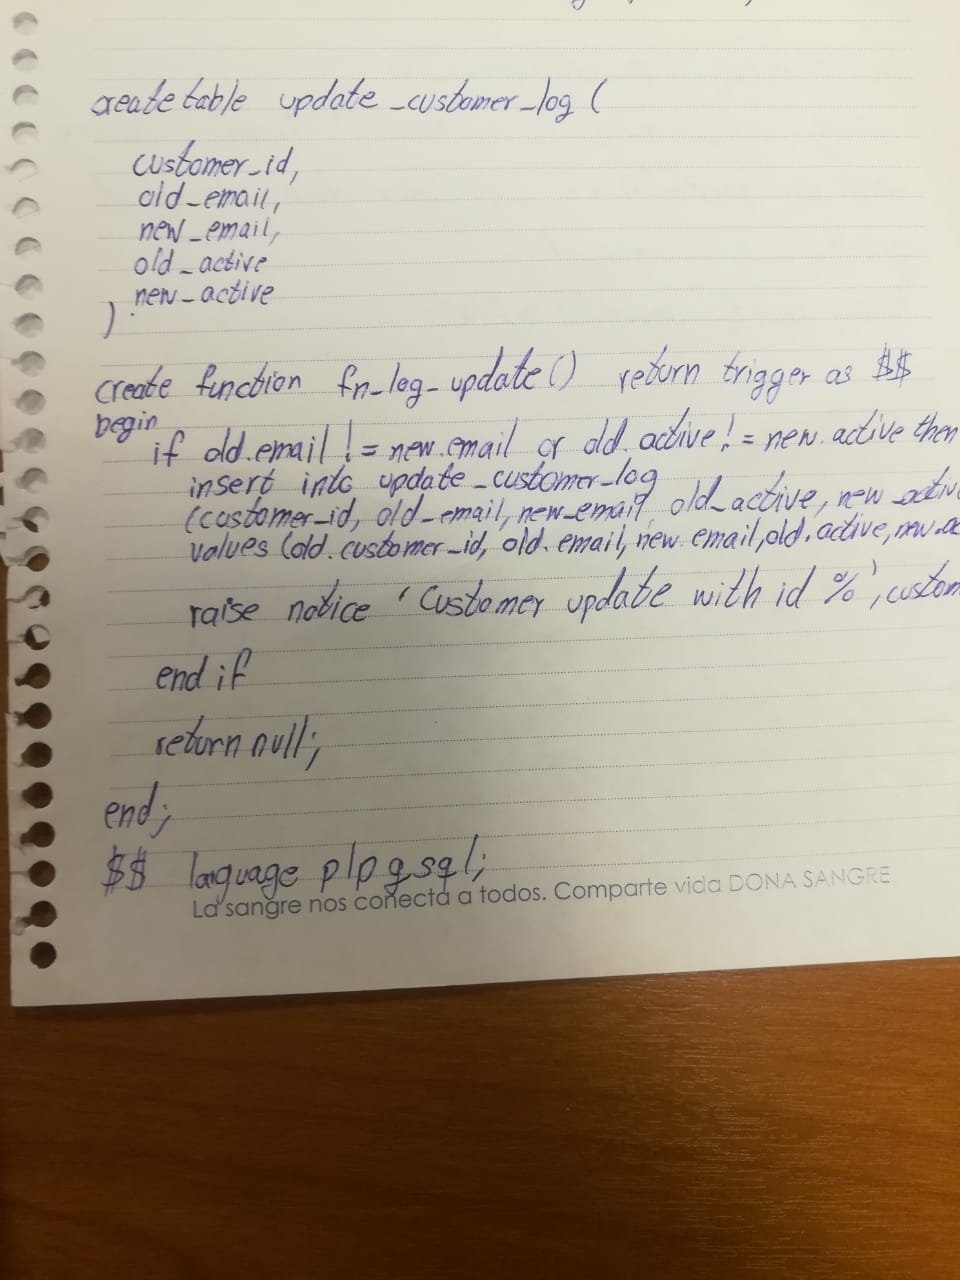 create table update_customer_log (
customer_id,
old_email,
new_email,
old_active
new_active
)
create function fn_log_update() return trigger as $$
begin
if old.email != new.email or old.active != new.active then
insert into update_customer_log
(customer_id, old_email, new_email, old_active, new_activ
values (old.customer_id, old.email, new.email, old.active, new.ac
raise notice 'Customer update with id %', custom
end if
return null;
end;
$$ language plpgsql;
La sangre nos conecta a todos. Comparte vida DONA SANGRE